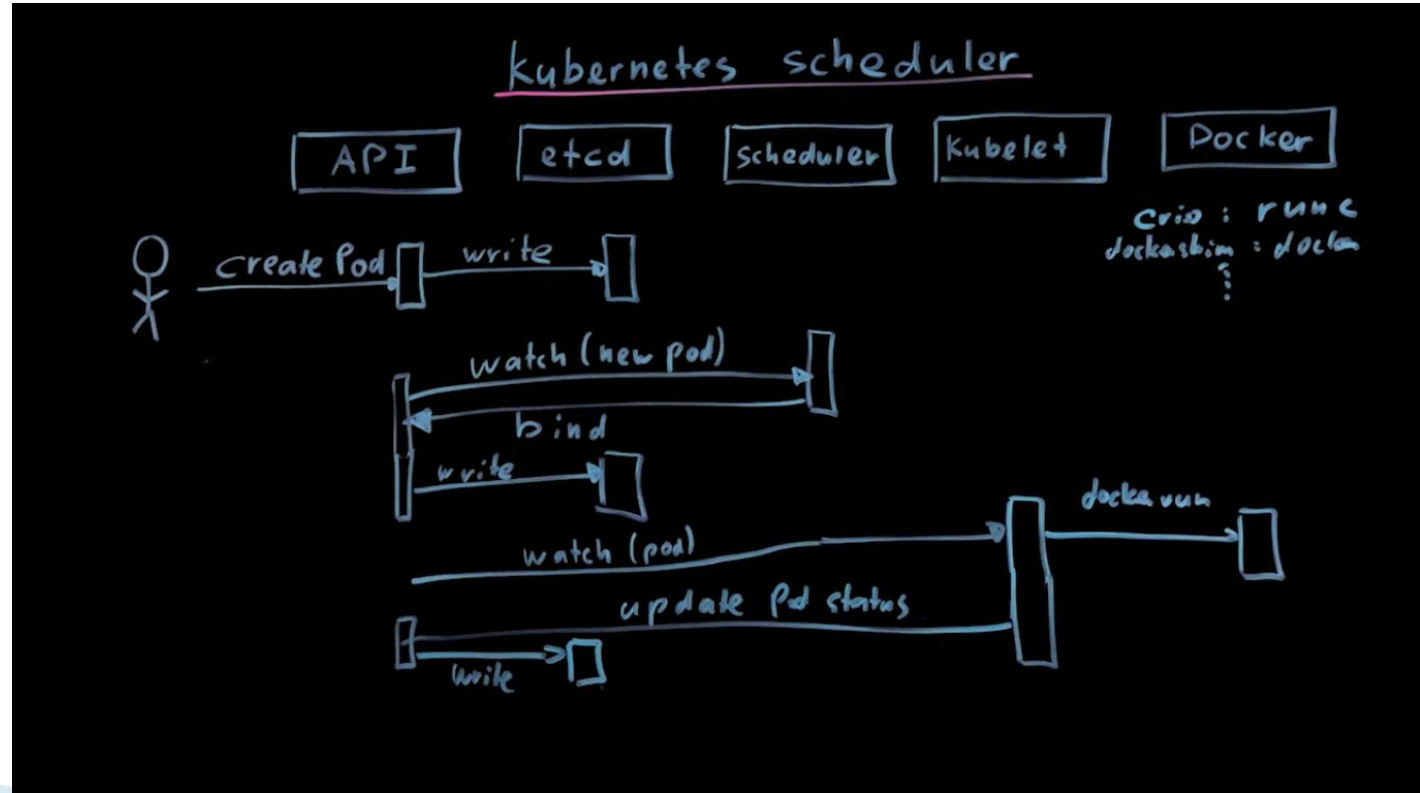 Kubernetes scheduler
API
etcd
scheduler
Kubelet
Docker
crio : runc
create Pod
write
watch (new pod)
bind
write
watch (pod)
update Pod status
write